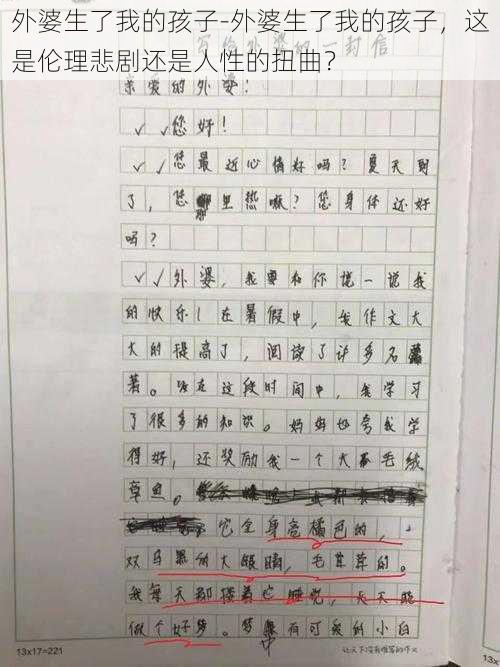 外婆生了我的孩子-外婆生了我的孩子，这
是伦理悲剧还是人性的扭曲？
写给外婆的一封信
亲爱的外婆：
您好！
您最近心情好吗？夏天到
了，您那里热嘛？您身体还好
吗？
外婆，我要和你说一说我
的快乐！在暑假中，我作文大
大的提高了，阅读了许多名
著。在这段时间中，我学习
了很多的知识。妈妈也夸我学
得好，还奖励我一个大毛绒
章鱼。
它全身亮橘色的，
双乌黑的大眼睛，毛茸茸的。
我每天都搂着它睡觉，天天晚
做个好梦。梦中有可爱的小白
13x17=221
让天下没有难写的作文